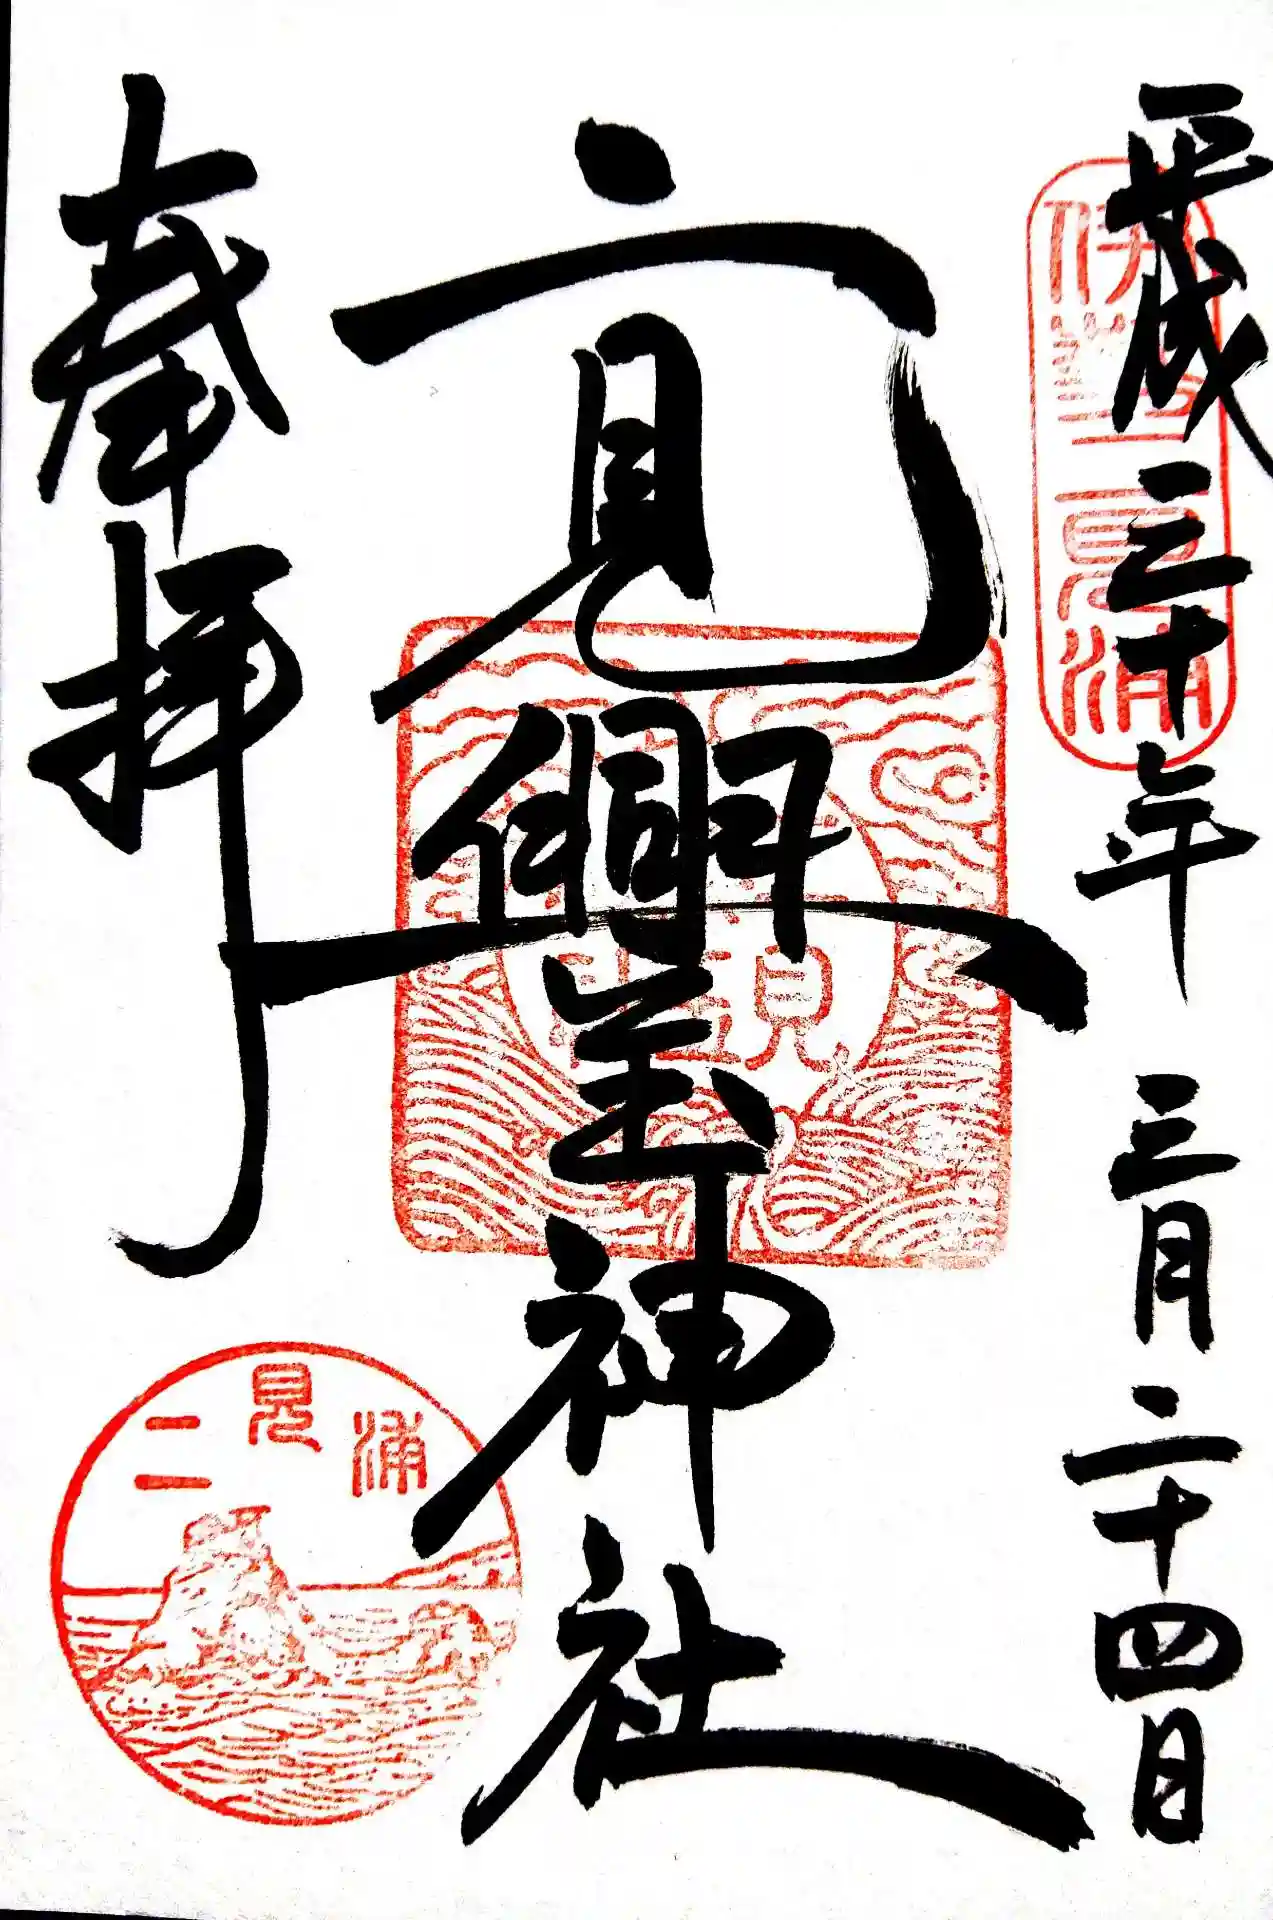 平成三十年 三月 二十四日
伊勢二見浦
二見興玉神社
奉拝
二見浦